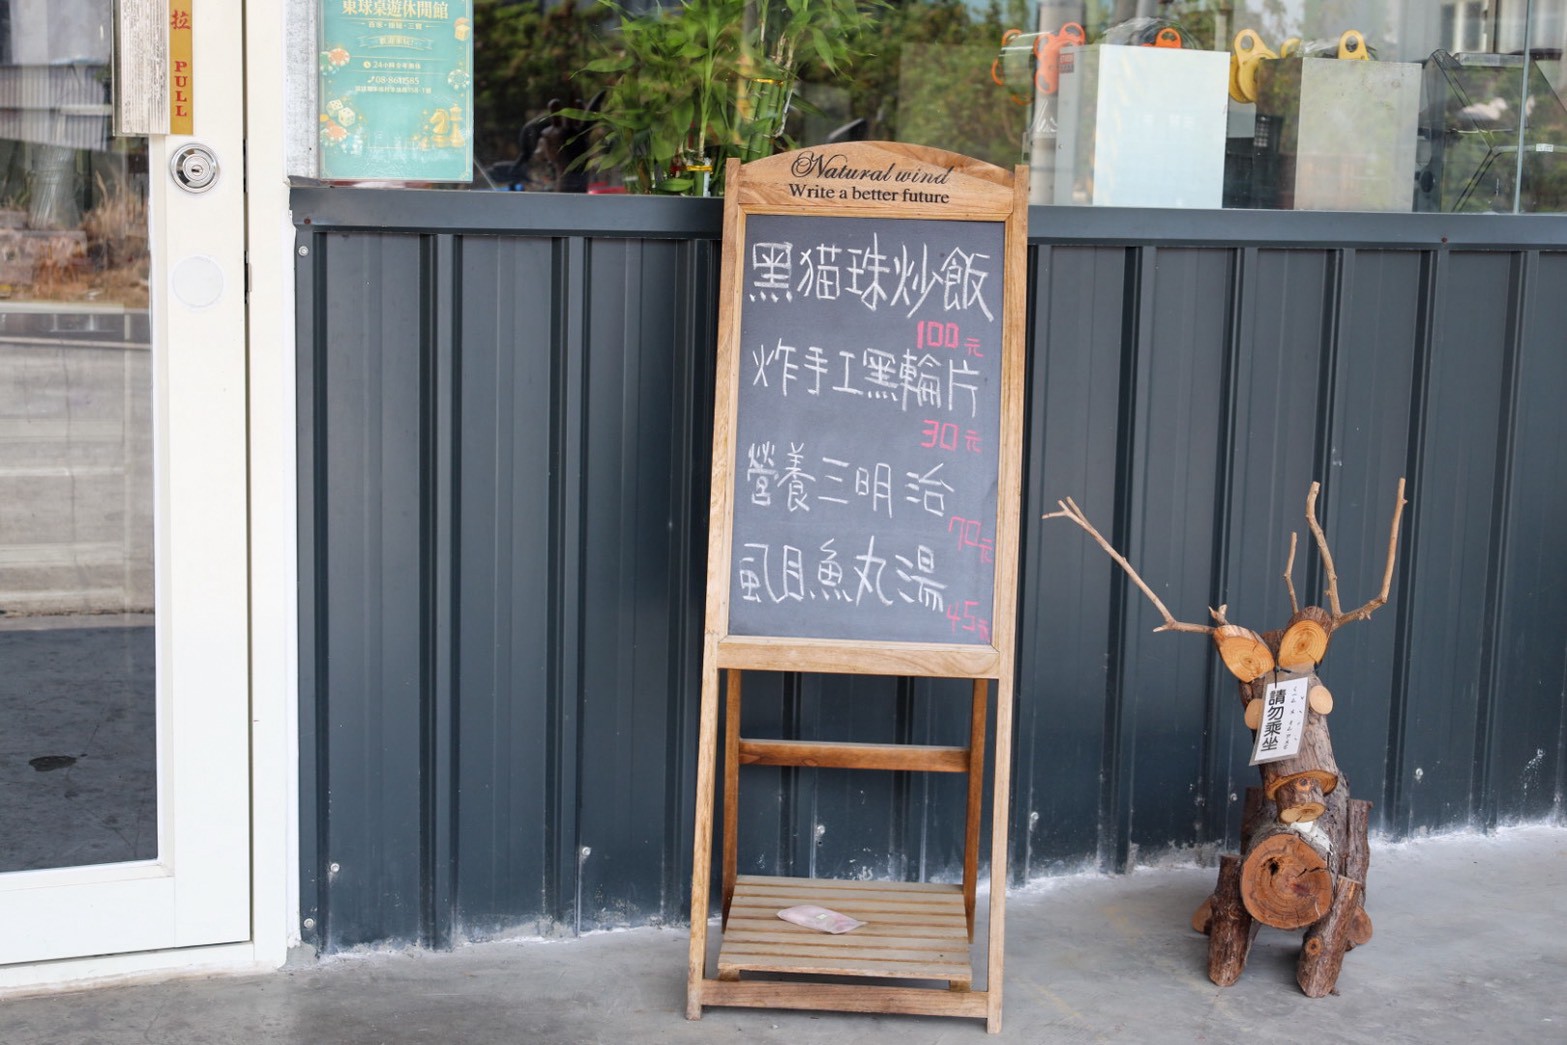 拉
PULL
東球桌遊休閒館
Natural wind
Write a better future
黑貓珠炒飯
100元
炸手工黑輪片
30元
營養三明治
70元
虱目魚丸湯
45元
請勿乘坐